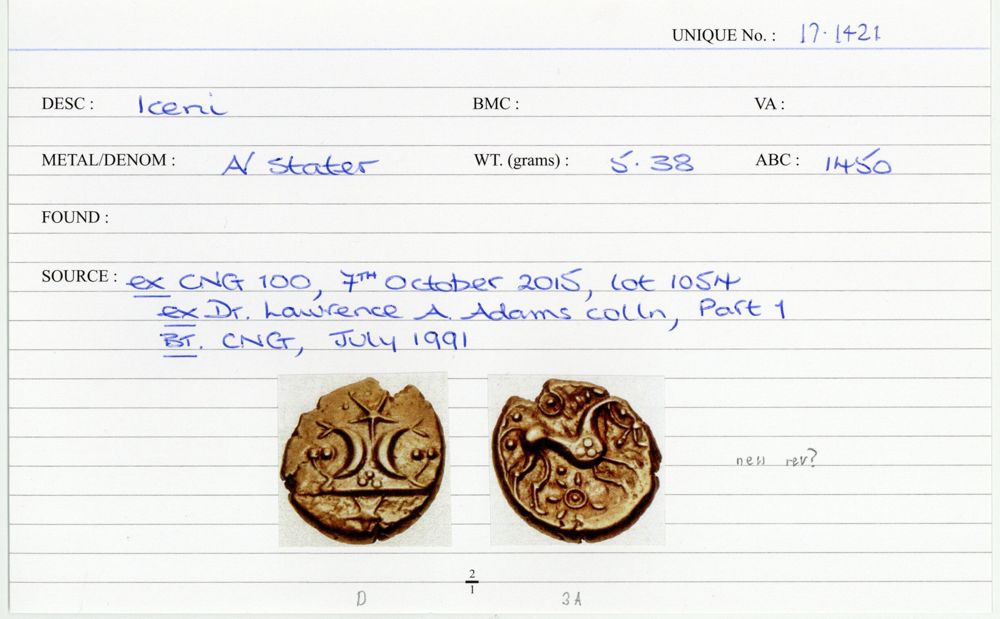 UNIQUE No. : 17.1421
DESC : Iceni BMC : VA :
METAL/DENOM : A/ Stater WT. (grams) : 5.38 ABC : 1450
FOUND :
SOURCE : ex CNG 100, 7TH October 2015, lot 1054
ex Dr. Lawrence A. Adams colln, Part 1
BT. CNG, July 1991
new rev?
2
1
D 3A